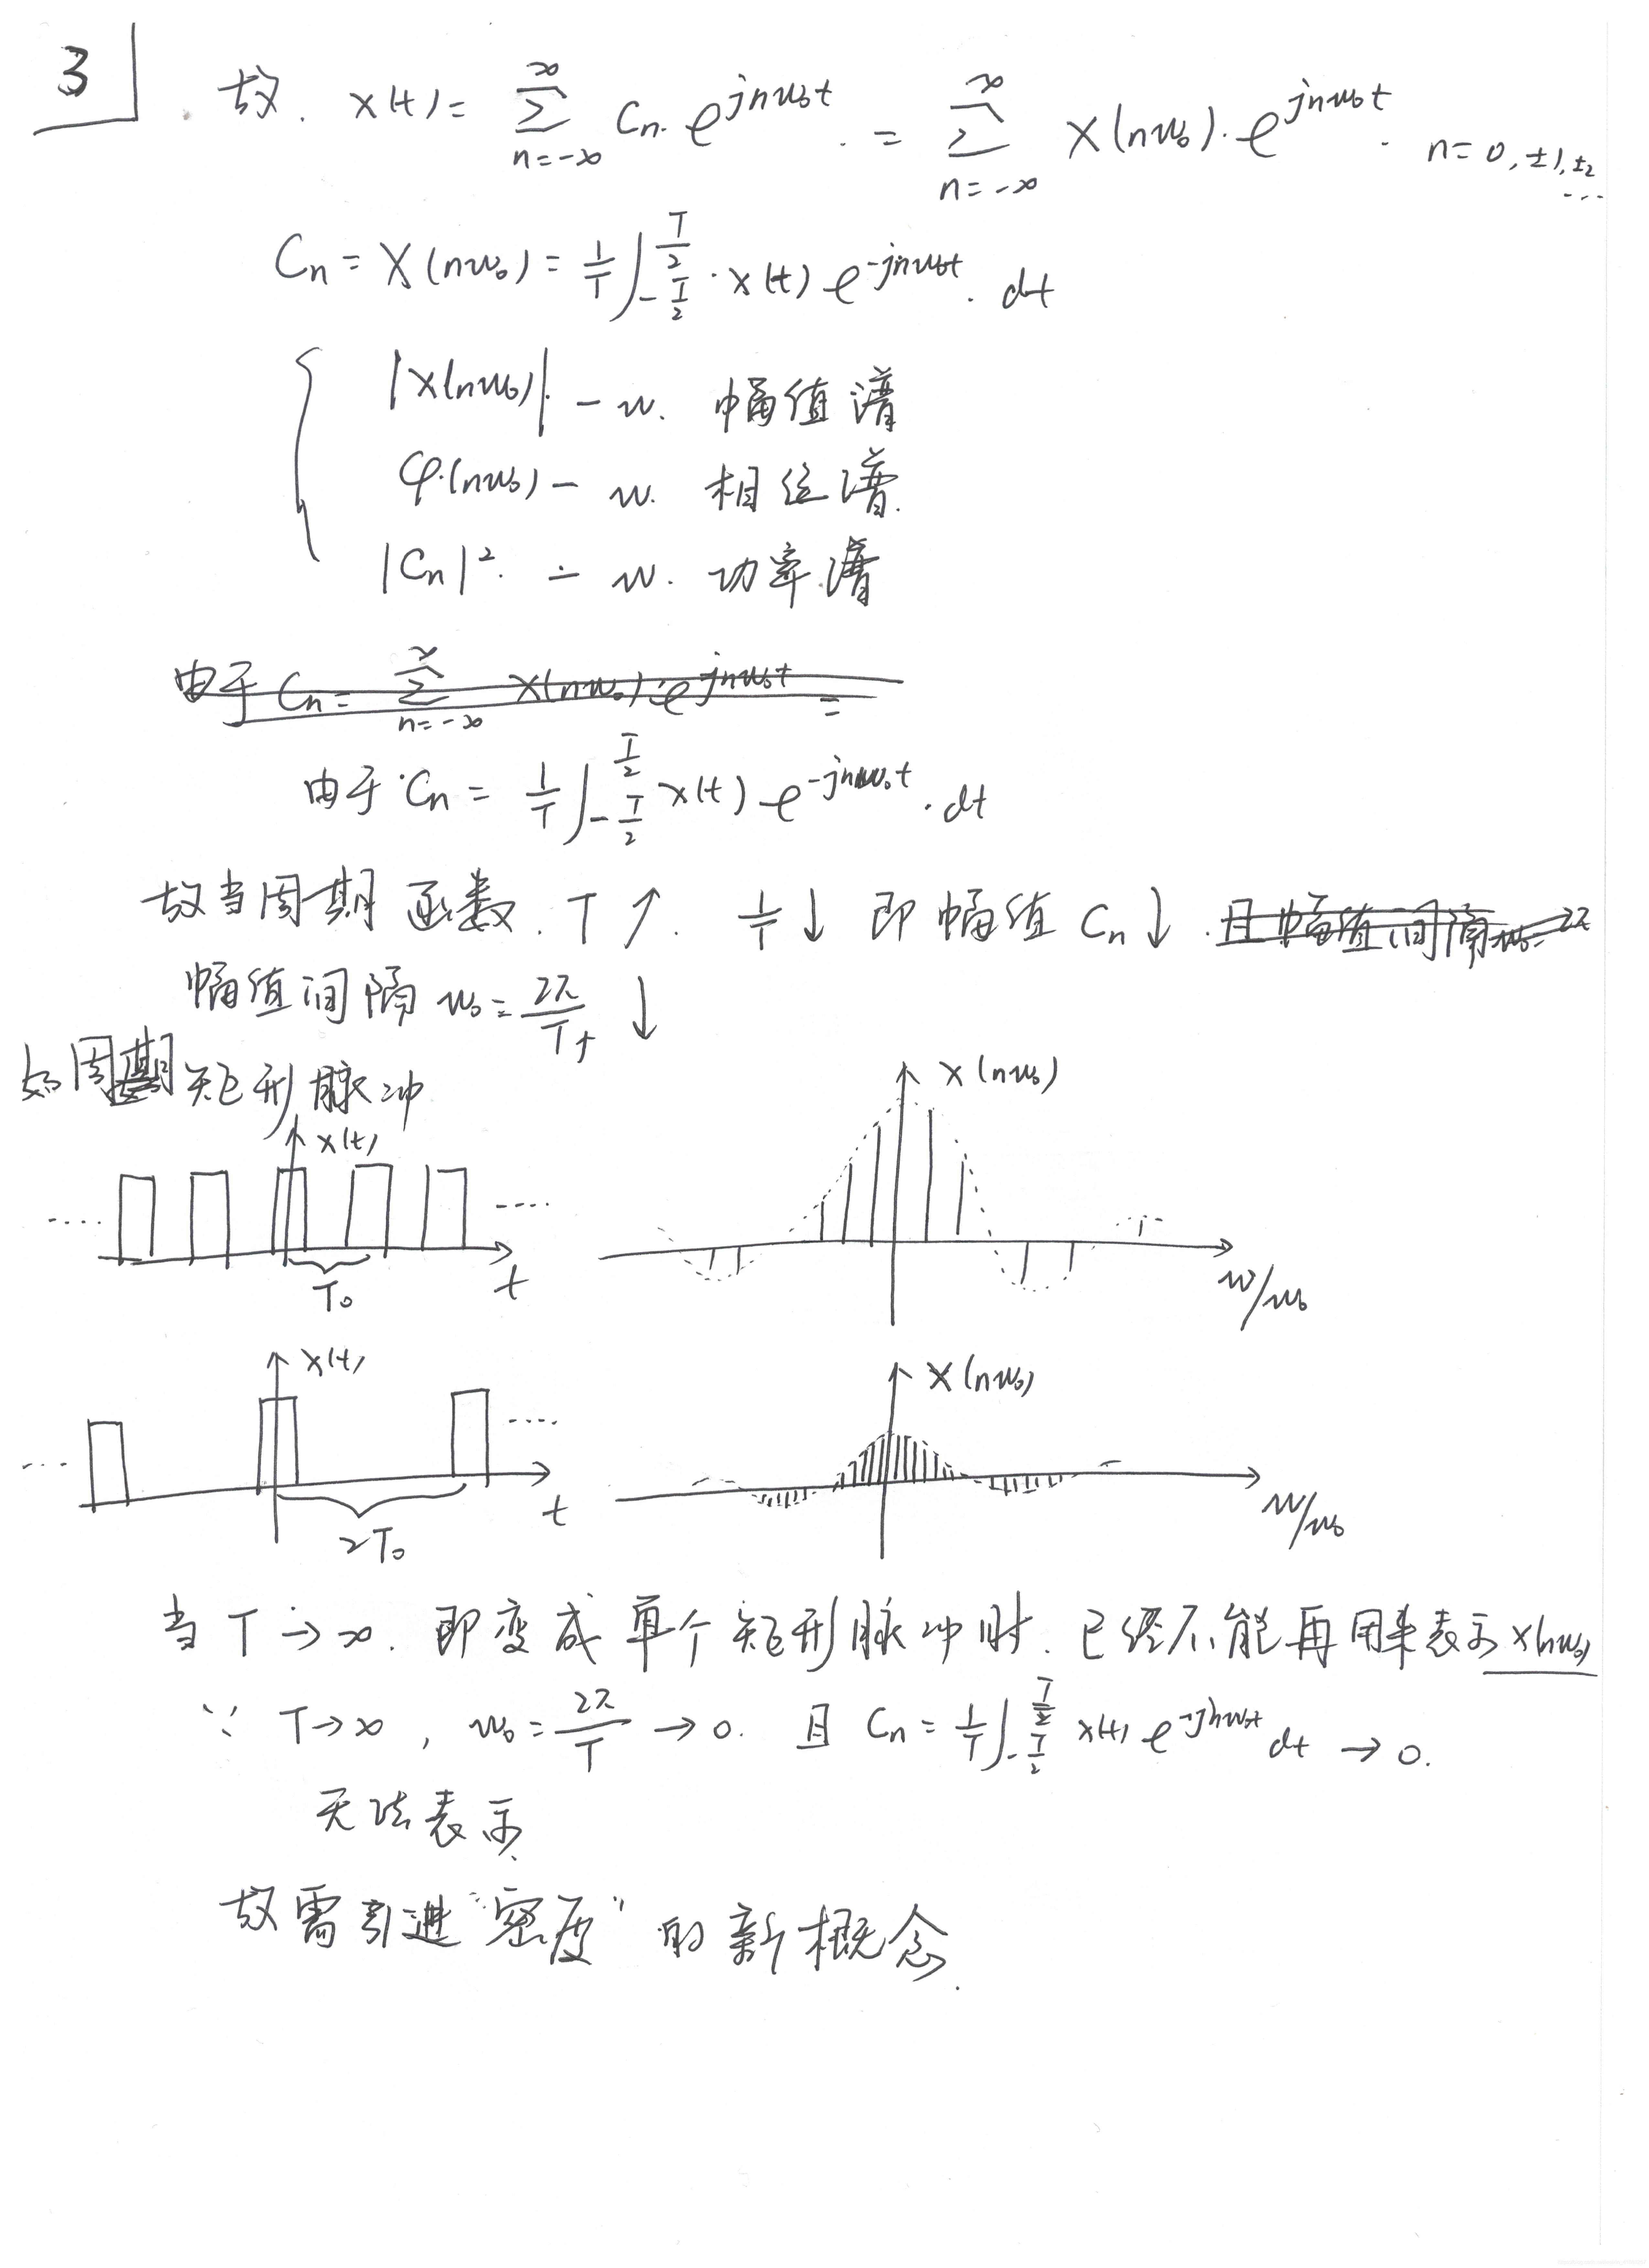 3
故. x(t) = ∑_{n=-∞}^{∞} Cn·e^{jnω₀t} = ∑_{n=-∞}^{∞} X(nω₀)·e^{jnω₀t}. n=0,±1,±2 ...
Cn = X(nω₀) = 1/T ∫_{-T/2}^{T/2} x(t) e^{-jnω₀t}. dt
|X(nω₀)| - ω. 幅值谱
φ(nω₀) - ω. 相位谱.
|Cn|² - ω. 功率谱
由于 Cn = ∑_{n=-∞}^{∞} X(nω₀)·e^{jnω₀t} =
由于 Cn = 1/T ∫_{-T/2}^{T/2} x(t) e^{-jnω₀t}. dt
故当周期函数. T↑. 1/T↓ 即幅值 Cn↓. 且幅值间隔ω₀=2π
幅值间隔 ω₀ = 2π/T↑ ↓
如周期矩形脉冲
x(t)
X(nω₀)
.... ....
T₀ t
ω/ω₀
x(t)
X(nω₀)
... ....
2T₀ t
ω/ω₀
当 T→∞. 即变成单个矩形脉冲时. 已经不能再用来表示X(nω₀)
∵ T→∞, ω₀ = 2π/T → 0. 且 Cn = 1/T ∫_{-T/2}^{T/2} x(t) e^{-jnω₀t} dt → 0.
无法表示.
故需引进“密度”的新概念.